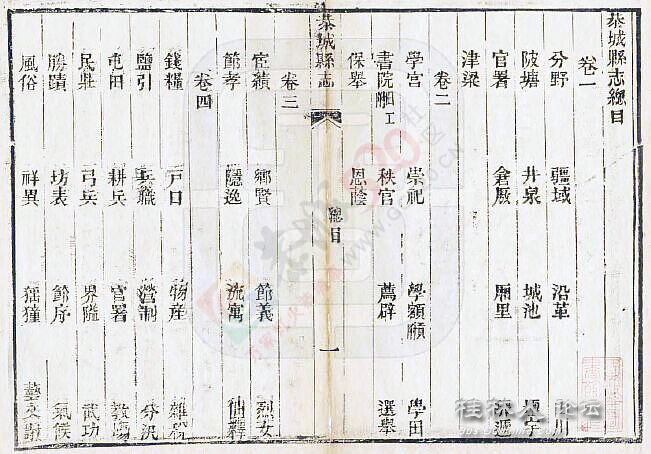 恭城縣志總目
卷一
分野 疆域 沿革 川
陂塘 井泉 城池
官署 倉厫 廂里 遞
津梁
卷二
學宮 崇祀 學額 學田
書院 秩官 薦辟 選舉
保舉 恩蔭
恭城縣志 總目 一
卷三
宦績 鄉賢 節義 烈女
節孝 隱逸 流寓 仙釋
卷四
錢糧 戸口 物産 雜稅
鹽引 兵職 營制 分汛
屯田 耕兵 官署 教塲
民壯 弓兵 界隘 武功
勝蹟 坊表 節序 氣候
風俗 祥異 猺獞 藝文
桂林人论坛